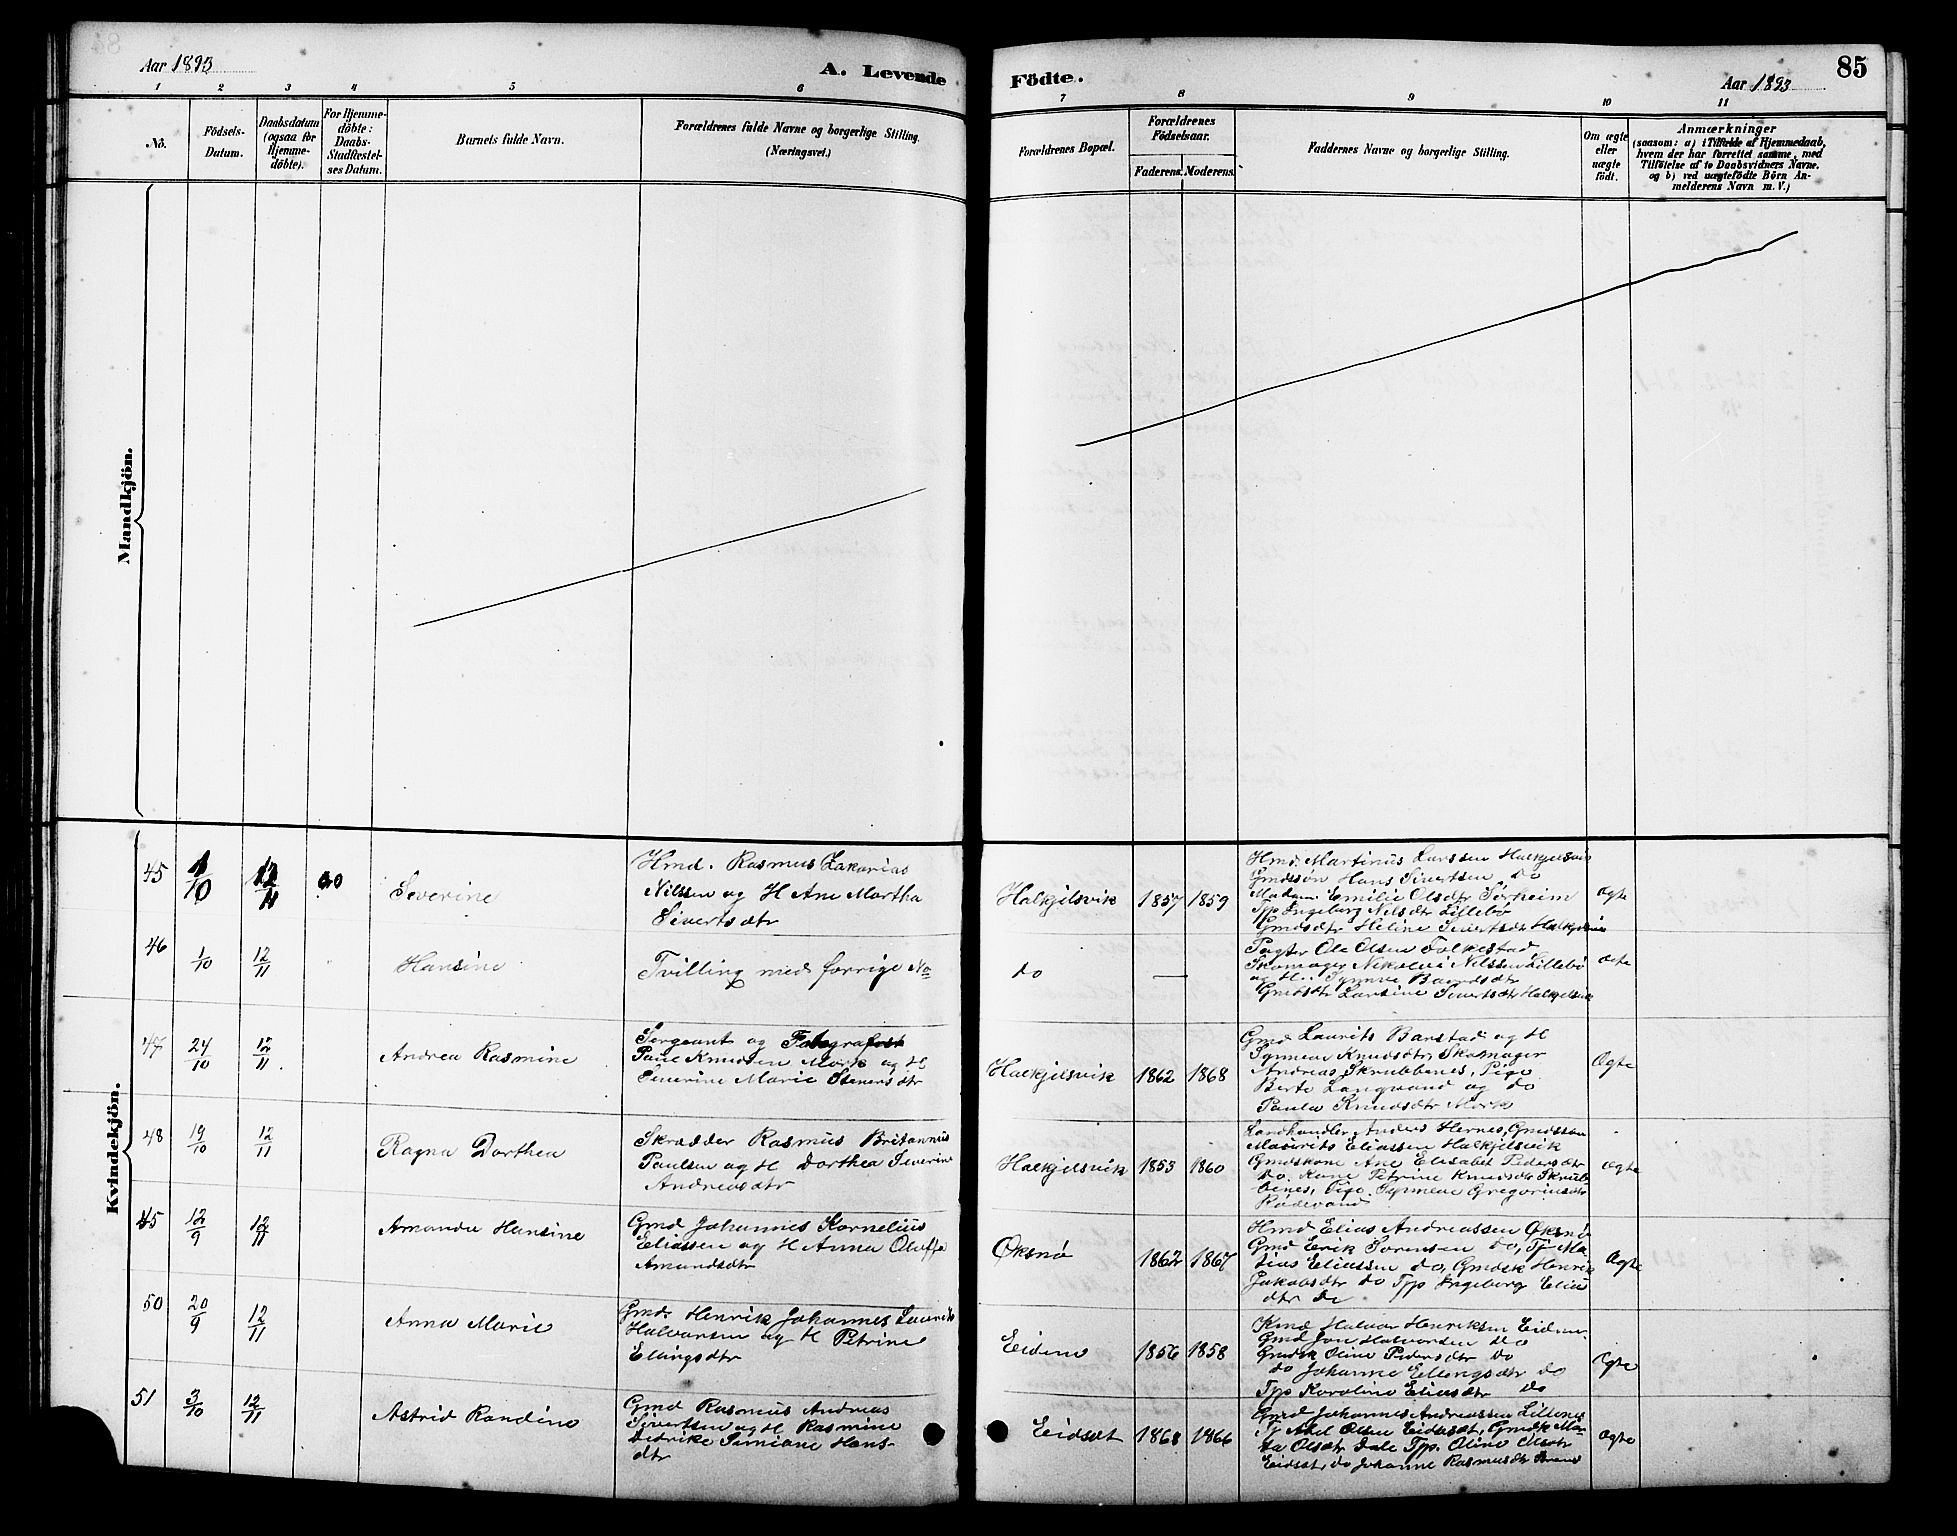 Aar 1893
A. Levende
Födte.
Aar 1893
85
1 2 3 4 5 6 7 8 9 10 11
No.
Födsels-
Datum.
Daabsdatum
(ogsaa for
Hjemme-
döbte).
For Hjemme-
döbte:
Daabs-
Stadfæstel-
ses Datum.
Barnets fulde Navn.
Forældrenes fulde Navne og borgerlige Stilling.
(Næringsvei.)
Forældrenes Bopæl.
Forældrenes
Födselsaar.
Faderens. Moderens.
Faddernes Navne og borgerlige Stilling.
Om ægte
eller
uægte
födt.
Anmærkninger
(saasom: a) i Tilfælde af Hjemmedaab,
hvem der har forrettet samme, med
Tilföielse af to Daabsvidners Navne.
og b) ved uægtefödte Börn An-
melderens Navn m. V.)
Mandkjön.
Kvindekjön.
45
1/10
12/11
Severine
Hmd. Rasmus Zakarias
Nilssen og H Ane Martha
Sivertsdtr
Halkjelsvik
1857
1859
Hmd. Martinus Larssen Halkjelsvik
Gmdssøn Hans Sivertsen do
Madam Emilie Olsdtr Sørheim
Tjp Ingeborg Nilsdtr Lillebø
Gmdsdtr Heline Sivertsdtr Halkjelsvik
Ægte
46
1/10
12/11
Hansine
Tvilling med forrige No
do
—
Pagter Ole Olsen Folkestad
Skomager Nikolai Nilssen Lillebø
og H. Synnve Baardsdtr
Gmdsdtr Larsine Sivertsdtr Halkjelsvik
Ægte
47
24/10
12/11
Andrea Rasmine
Sergeant og Fotograf
Paul Knudsen Mork og H
Severine Marie Stenersdtr
Halkjelsvik
1862
1868
Gmd Laurits Barstad og H
Synneve Knudsdtr, Skomager
Andreas Skrubbenes, Pige
Berte Langvand og do
Paula Knudsdtr Mork
Ægte
48
19/10
12/11
Ragna Dorthea
Skrædder Rasmus Britannus
Paulsen og H Dorthea Severine
Andreasdtr
Halkjelsvik
1853
1860
Landhandler Anders Hernes, Gmdssøn
Maurits Eliassen Halkjelsvik
Gmdskone Ane Elisabet Pedersdtr
do. Karie Petrine Knudsdtr Skrub-
benes, Pige Synneve Gregoriusdtr
Rødevand
Ægte
45
12/9
12/11
Amanda Hansine
Gmd Johannes Kornelius
Eliassen og H Anna Oluffa
Amundsdtr
Øksnø
1862
1867
Hmd Elias Andreassen Øksnø
Gmd Erik Sørensen do, Tj Ma-
tias Eliassen do, Gmdsk Henrik
Jakobsdtr do Tjp Ingeborg Elias
dtr do
Ægte
50
20/9
12/11
Anna Marie
Gmd. Henrik Johannes Laurits
Halvorsen og H Petrine
Ellingsdtr
Eidene
1856
1858
Kmd Halvor Henriksen Eidene
Gmd Jon Halvorsen do
Gmdsk Oline Pedersdtr do
do Johanne Ellingsdtr do
Tjp Karoline Eliasdtr do
Ægte
51
3/10
12/11
Astrid Randine
Gmd Rasmus Andreas
Sivertsen og H Rasmine
Didrike Simiane Hans-
dtr
Eidsæt
1861
1866
Gmd Johannes Andreassen Lillenes
Tj Axel Olsen Eidsæt, Gmdk Mar-
ta Olsdtr Dale Tjp. Oline Olsdtr
Eidsæt, do Johanne Rasmusdtr
Ægte